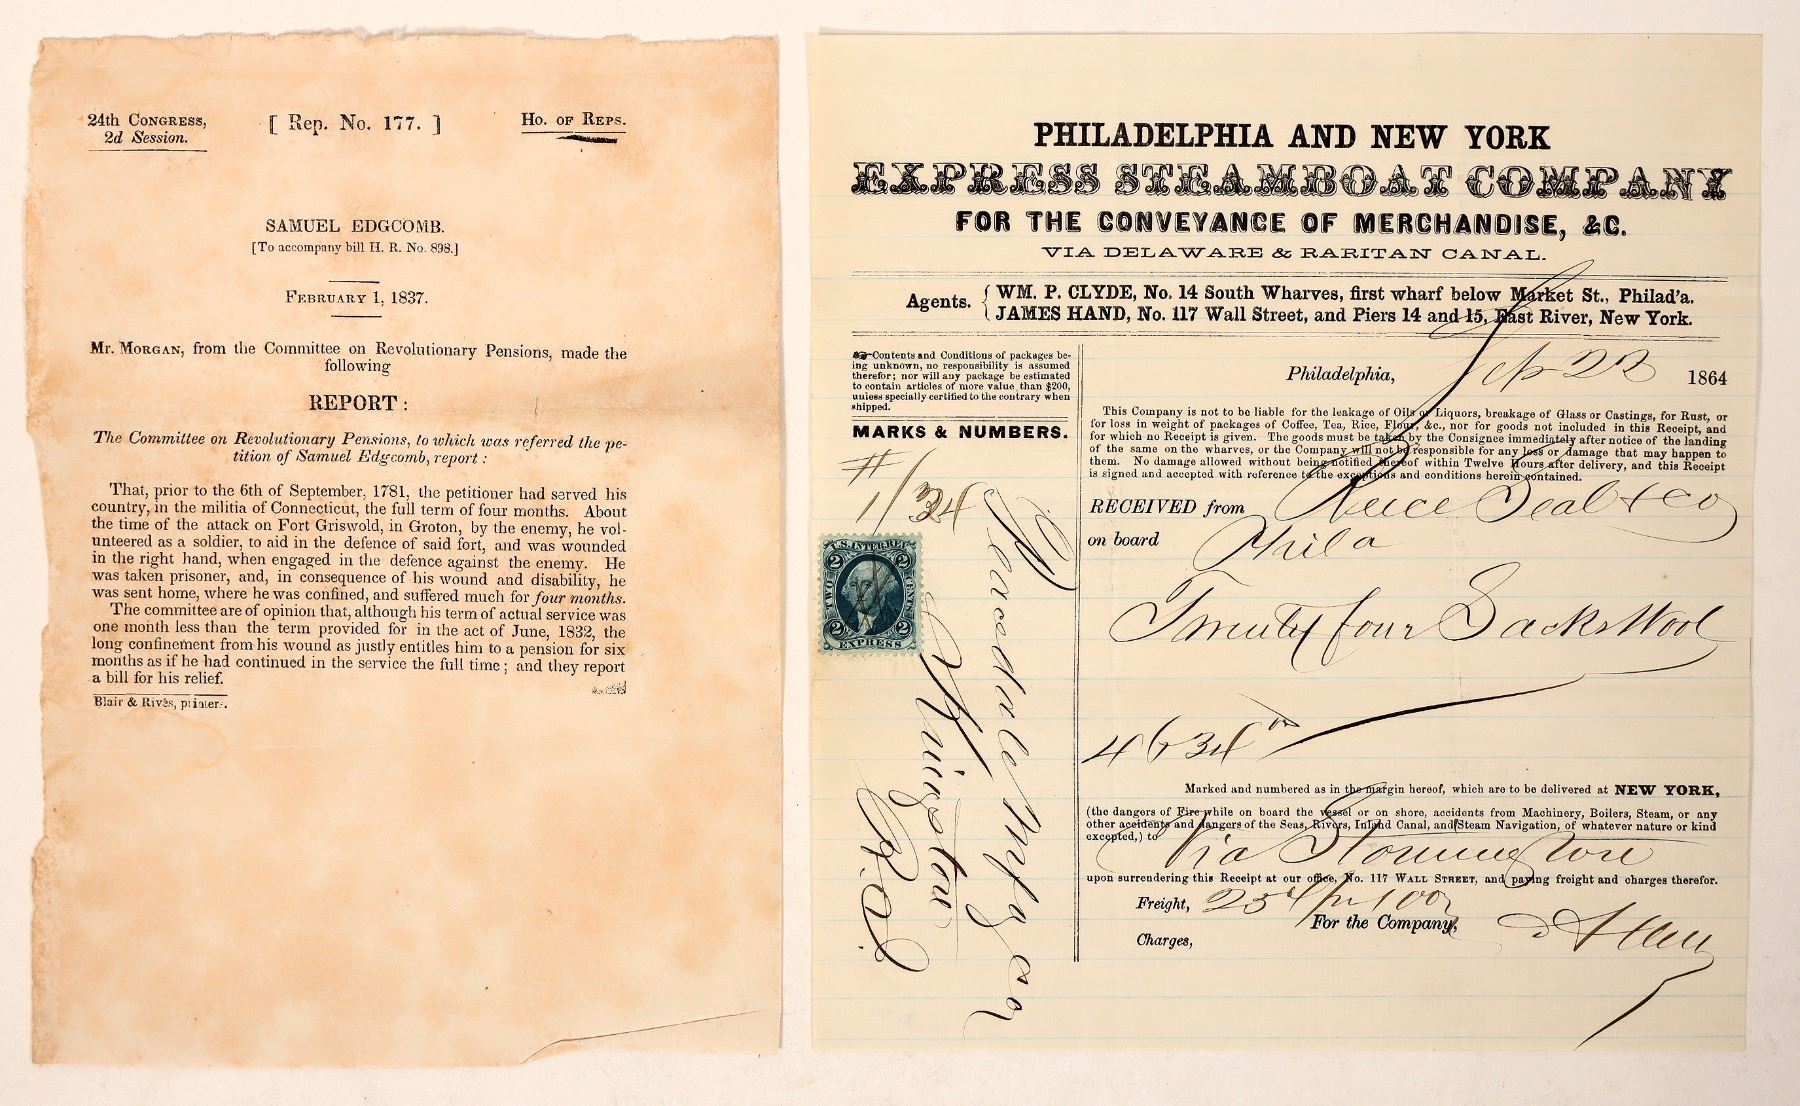 24th Congress, [ Rep. No. 177. ] Ho. of Reps.
2d Session.
SAMUEL EDGCOMB.
[To accompany bill H. R. No. 898.]
February 1, 1837.
Mr. Morgan, from the Committee on Revolutionary Pensions, made the
following
REPORT:
The Committee on Revolutionary Pensions, to which was referred the pe-
tition of Samuel Edgcomb, report:
That, prior to the 6th of September, 1781, the petitioner had served his
country, in the militia of Connecticut, the full term of four months. About
the time of the attack on Fort Griswold, in Groton, by the enemy, he vol-
unteered as a soldier, to aid in the defence of said fort, and was wounded
in the right hand, when engaged in the defence against the enemy. He
was taken prisoner, and, in consequence of his wound and disability, he
was sent home, where he was confined, and suffered much for four months.
The committee are of opinion that, although his term of actual service was
one month less than the term provided for in the act of June, 1832, the
long confinement from his wound as justly entitles him to a pension for six
months as if he had continued in the service the full time; and they report
a bill for his relief.
Blair & Rives, printers.
PHILADELPHIA AND NEW YORK
EXPRESS STEAMBOAT COMPANY
FOR THE CONVEYANCE OF MERCHANDISE, &C.
VIA DELAWARE & RARITAN CANAL.
Agents. { WM. P. CLYDE, No. 14 South Wharves, first wharf below Market St., Philad'a.
JAMES HAND, No. 117 Wall Street, and Piers 14 and 15, East River, New York.
Contents and Conditions of packages be-
ing unknown, no responsibility is assumed
therefor; nor will any package be estimated
to contain articles of more value than $200,
unless specially certified to the contrary when
shipped.
MARKS & NUMBERS.
# 1/34
U.S. INTER. REV.
2 2
TWO CENTS
2 2
EXPRESS
Peacedale Mfg Co
Kingston
R.I.
Philadelphia, 22 1864
This Company is not to be liable for the leakage of Oils or Liquors, breakage of Glass or Castings, for Rust, or
for loss in weight of packages of Coffee, Tea, Rice, Flour, &c., nor for goods not included in this Receipt, and
for which no Receipt is given. The goods must be taken by the Consignee immediately after notice of the landing
of the same on the wharves, or the Company will not be responsible for any loss or damage that may happen to
them. No damage allowed without being notified thereof within Twelve Hours after delivery, and this Receipt
is signed and accepted with reference to the exceptions and conditions herein contained.
RECEIVED from Reece Seal & Co
on board Phila
Twenty four Sacks Wool
4634
Marked and numbered as in the margin hereof, which are to be delivered at NEW YORK,
(the dangers of Fire while on board the vessel or on shore, accidents from Machinery, Boilers, Steam, or any
other accidents and dangers of the Seas, Rivers, Inland Canal, and Steam Navigation, of whatever nature or kind
excepted,) to Via Stonington
upon surrendering this Receipt at our office, No. 117 Wall Street, and paying freight and charges therefor.
Freight, 25 pr 100
For the Company,
Charges,